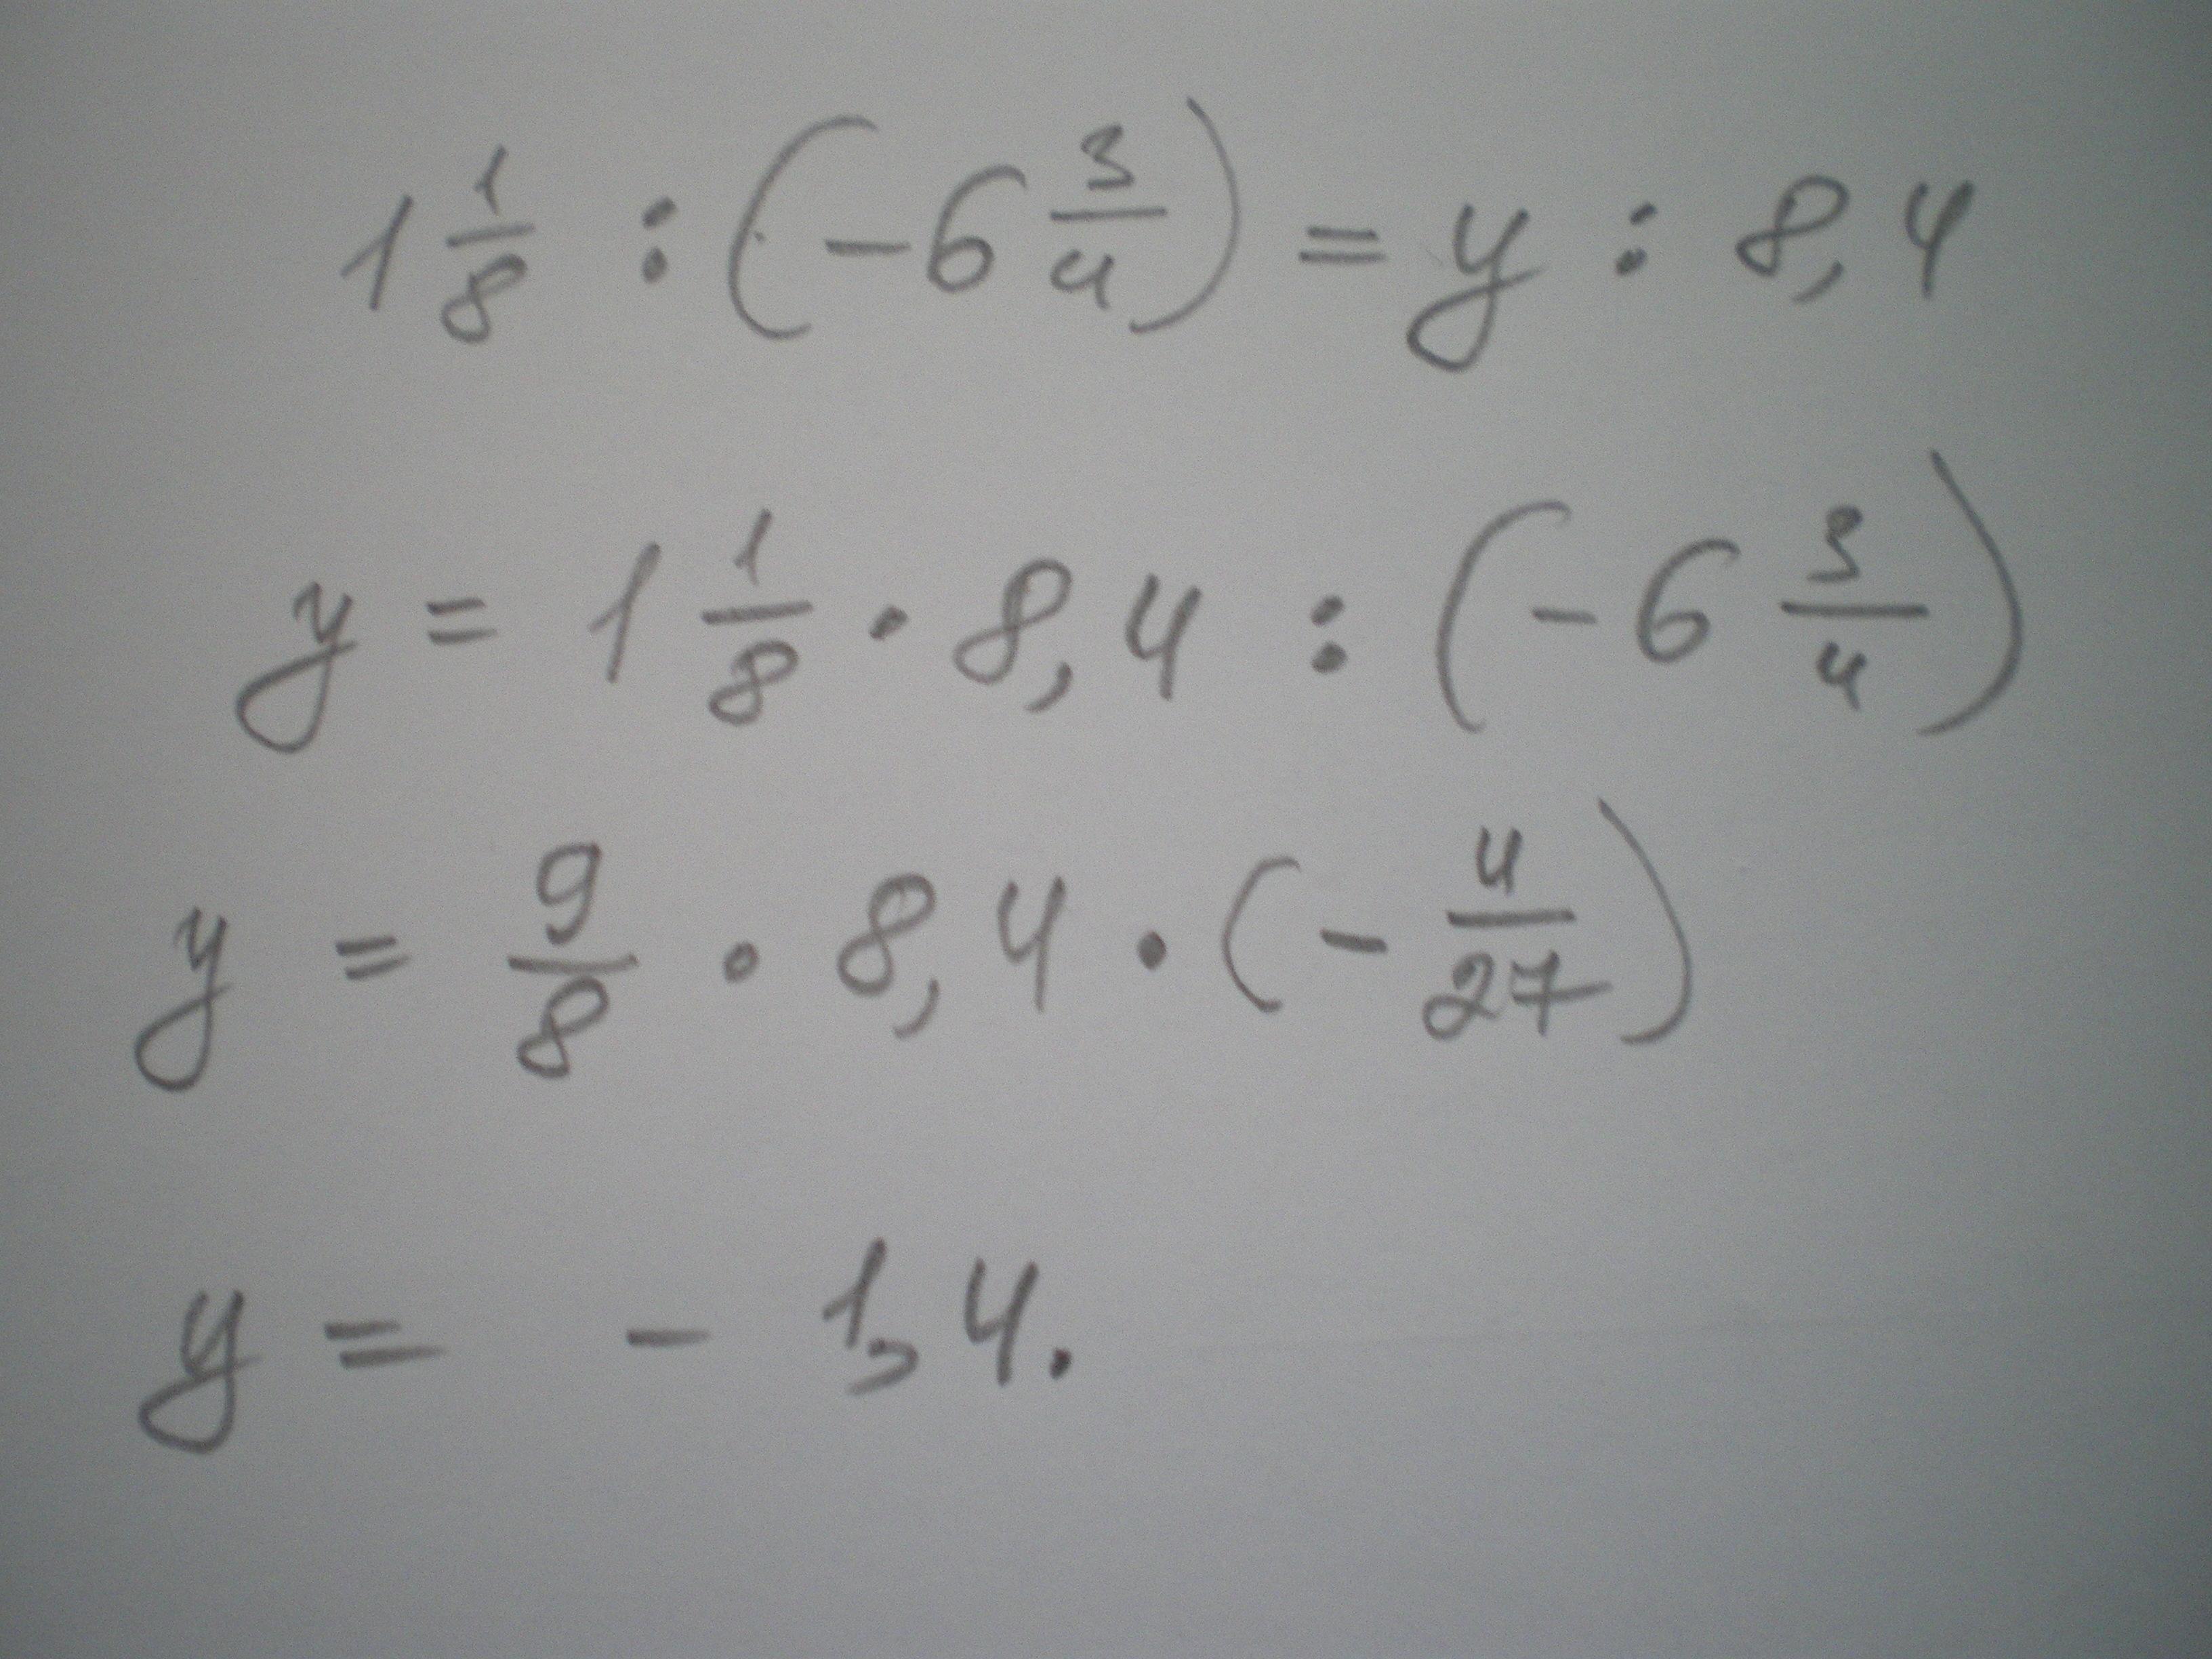 1 1/8 : (-6 3/4) = y : 8,4
y = 1 1/8 · 8,4 : (-6 3/4)
y = 9/8 · 8,4 · (-4/27)
y = - 1,4.